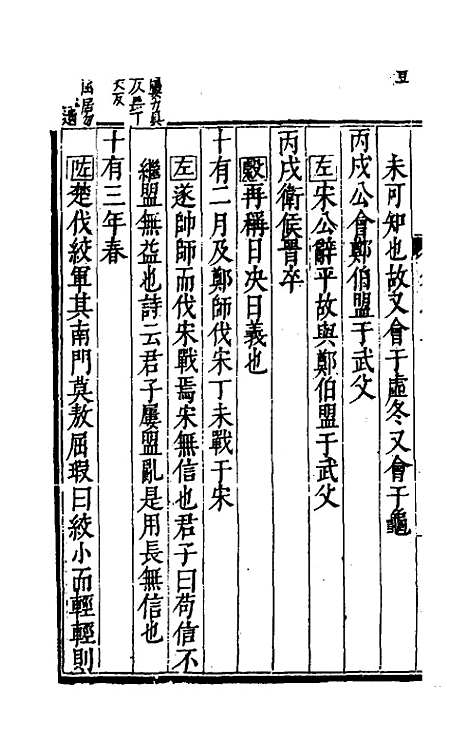 未可知也故又會于虛冬又會于龜
丙戌公會鄭伯盟于武父
左宋公辭平故與鄭伯盟于武父
丙戌衛侯晋卒
穀再稱日决日義也
十有二月及鄭師伐宋丁未戰于宋
左遂帥師而伐宋戰焉宋無信也君子曰苟信不
繼盟無益也詩云君子屢盟亂是用長無信也
十有三年春
左楚伐絞軍其南門莫敖屈瑕曰絞小而輕輕則
屢力具
反長丁
丈反
屈居勿